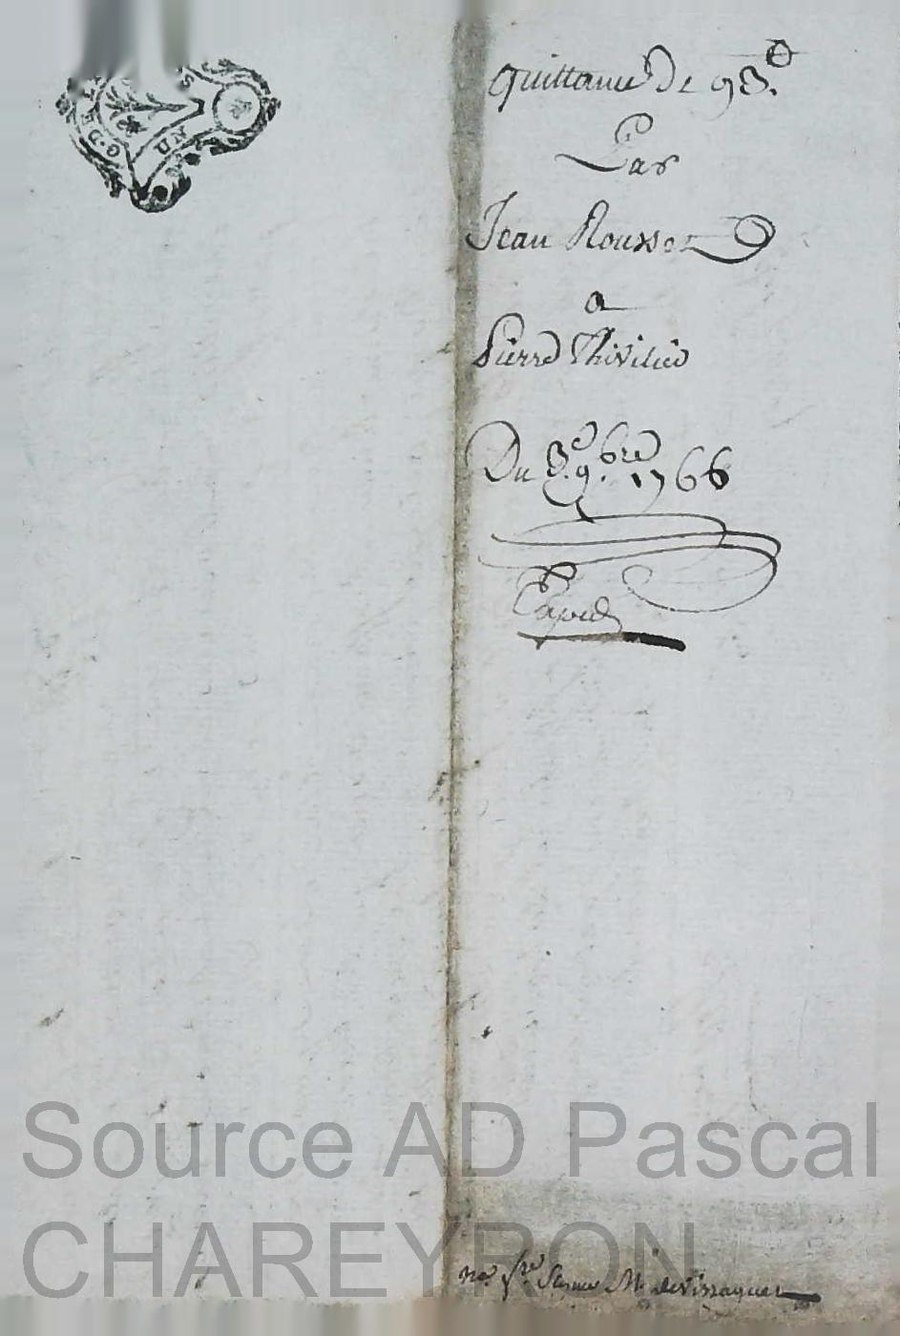 UN
Quittance De 93#
Par
Jean Rousset
a
Pierre Thivilié
Du 3e 9.bre 1766
Source AD Pascal
CHAREYRON